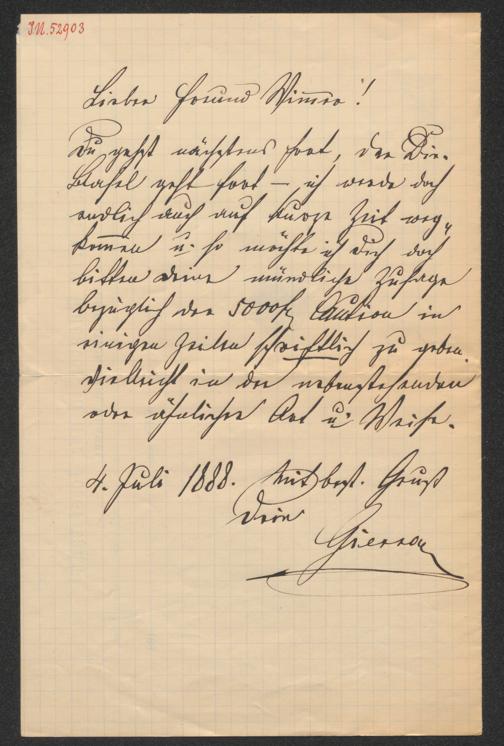 I.N. 52903
Lieber Freund Wimmer!
Du gehst nächstens fort, der Die-
geht fort – ich werde doch
endlich auch auf kurze Zeit weg-
kommen u. so möchte ich Dich doch
bitten Deine mündliche Zusage
bezüglich der 5000 Caution in
einigen Zeilen schriftlich zu geben.
Vielleicht in der nebenstehenden
oder ähnlicher Art u. Weise.
4. Juli 1888. Mit best. Gruß
Dein